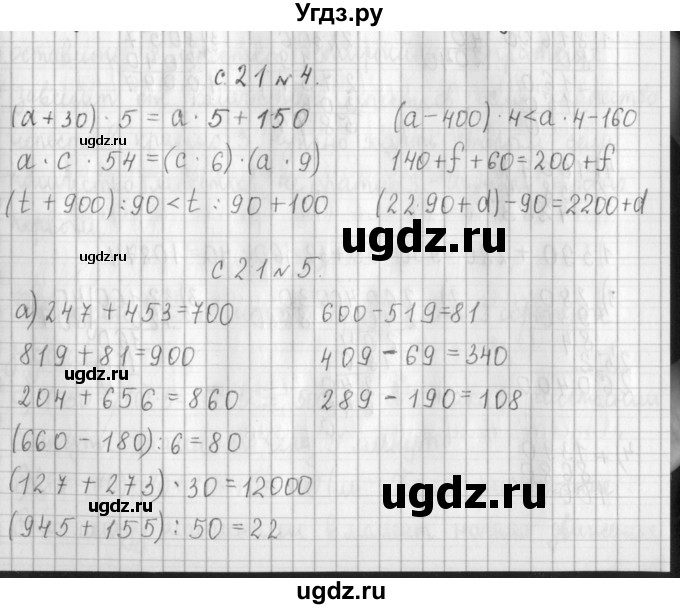 Угдз.ру
с. 21 № 4.
(a + 30) · 5 = a · 5 + 150    (a - 400) · 4 < a · 4 - 160
ugdz.ru
a · c · 54 = (c · 6) · (a · 9)    140 + f + 60 = 200 + f
(t + 900) : 90 < t : 90 + 100    (2290 + d) - 90 = 2200 + d
ugdz.ru
ugdz.ru
с 21 № 5.
а) 247 + 453 = 700    600 - 519 = 81
819 + 81 = 900    409 - 69 = 340
ugdz.ru
204 + 656 = 860    289 - 190 = 108
(660 - 180) : 6 = 80
(127 + 273) · 30 = 12000
ugdz.ru
ugdz.ru
(945 + 155) : 50 = 22
ugdz.ru